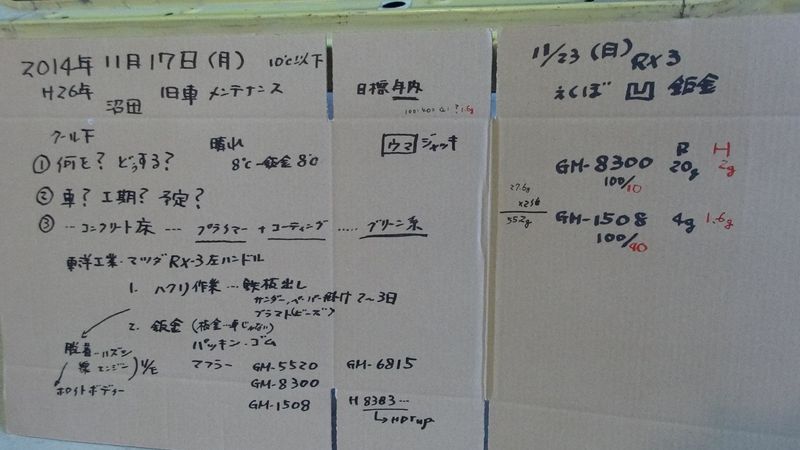 2014年 11月17日(月) 10℃以下
H26年 旧車 メンテナンス
沼田
目標 年内
クール下 晴れ
① 何を? どうする? 8℃-鈑金 8℃
ウマ ジャッキ
② 車? 工期? 予定?
③ …コンクリート床 ---- プライマー + コーティング ..... グリーン系
東洋工業・マツダ RX-3 左ハンドル
1. ハクリ作業 … 鉄板出し
サンダー、ペーパー掛け 2~3日
ブラスト(ビーズ)
2. 鈑金
パッキン・ゴム
脱着-ハズシ
エンジン
ホワイトボディー
マフラー GM-5520 GM-6815
GM-8300
GM-1508 H 8383…
↳HDT up
11/23 (日) RX3
えくぼ 凹 鈑金
R H
GM-8300 20g 2g
100/10
27.6g
×2倍
55.2g
GM-1508 4g 1.6g
100/40